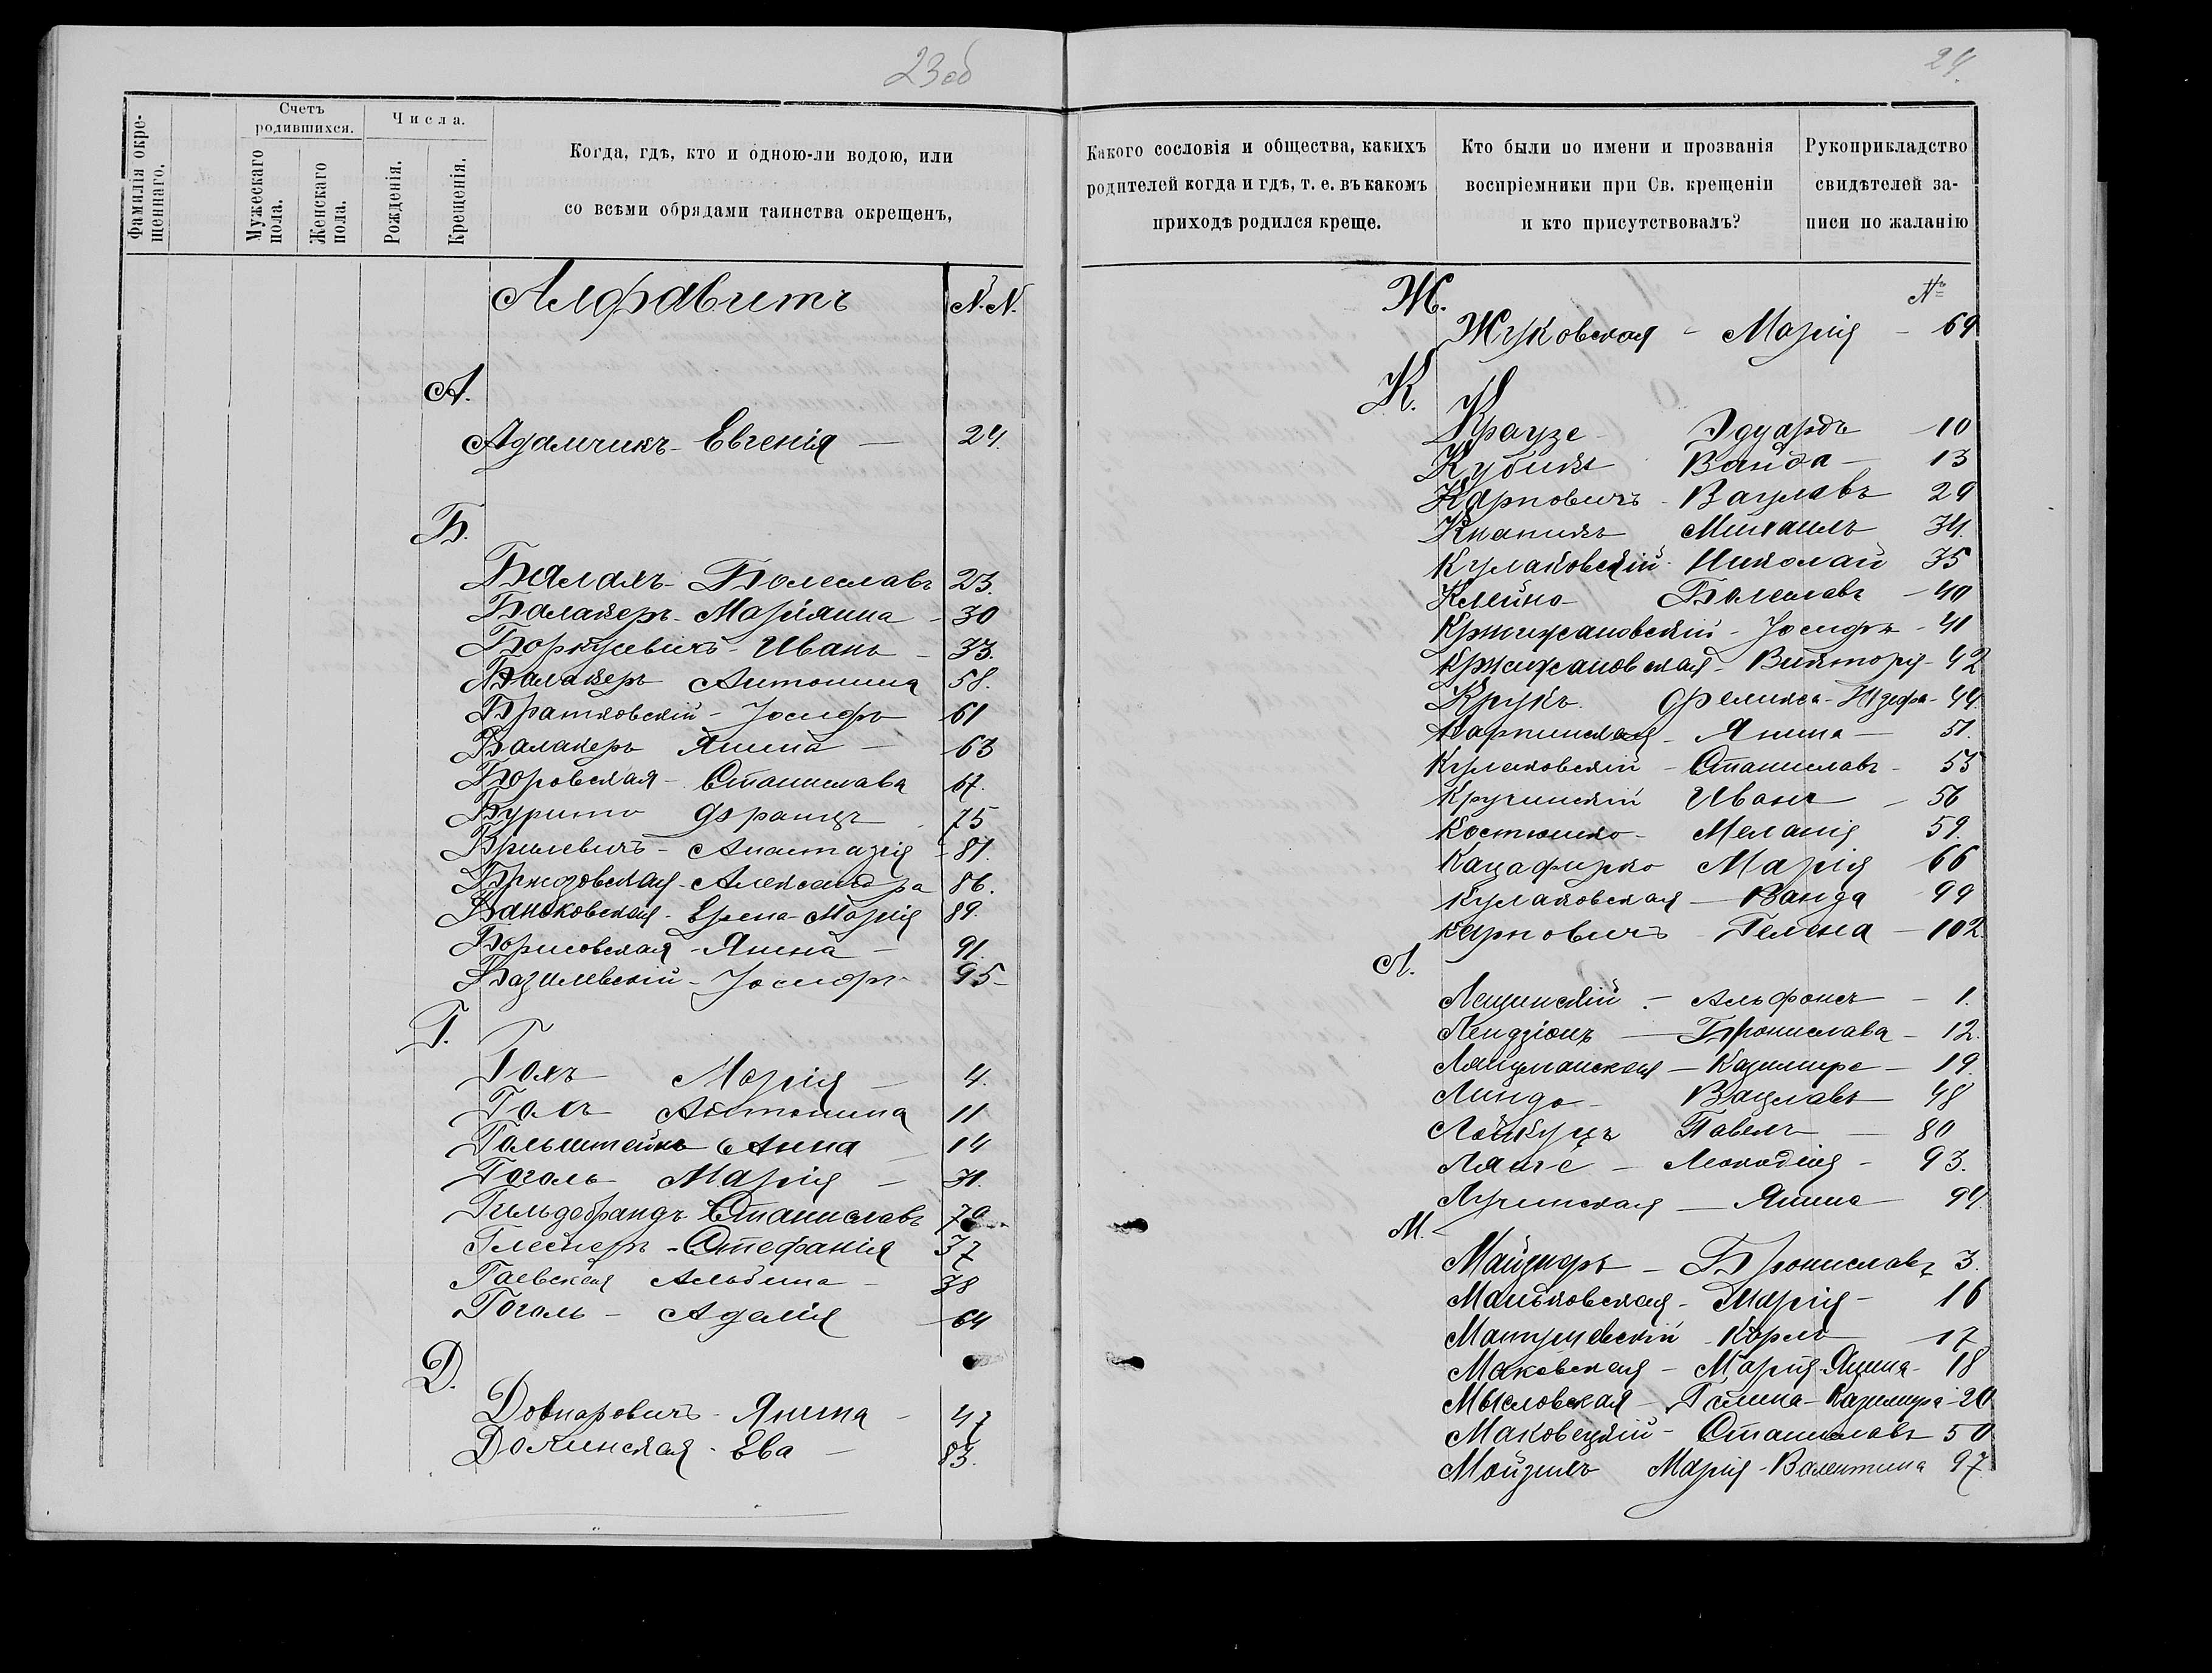 23об
Фамилія окрещеннаго.
Счетъ родившихся.
Мужескаго пола.
Женскаго пола.
Числа.
Рожденія.
Крещенія.
Когда, гдѣ, кто и одною-ли водою, или
со всѣми обрядами таинства окрещенъ,
Алфавитъ N.N.
А.
Адамчикъ - Евгенія — 24.
Б.
Балахъ - Болеславъ 23.
Балакеръ - Маріянна - 30
Боркусевичъ - Иванъ - 33.
Балакеръ Антонина 58.
Братковскій - Іосифъ 61
Балакеръ Янина — 63
Боровская - Станислава 67.
Францъ 75
Анастазія - 81.
Александра 86.
Марія 89.
Борисовская - Янина - 91.
Базилевскій - Іосифъ 95-
Г.
Марія — 4.
Антонина 11
Гольштейнъ Анна — 14
Гоголь Марія — 31.
Гильдебрандъ Станиславъ 70
Глеснеръ - Стефанія 37
Гаевская Альбина - 38
Гоголь - Аделія 64
Д.
Довнаровичъ - Янина - 47
Долинская - Ева — 83.
24.
Какого сословія и общества, какихъ
родителей когда и гдѣ, т. е. въ какомъ
приходѣ родился креще.
Кто были по имени и прозванія
воспріемники при Св. крещеніи
и кто присутствовалъ?
Рукоприкладство
свидѣтелей за-
писи по жаланію
Ж. №
Жуковская - Марія - 69
К.
Краузе - Эдуардъ - 10
Кубикъ Ванда - 13
Карповичъ - Вацлавъ 29
Кнапикъ Михаилъ 34.
Кулаковскій - Николай 35
Клейно - Болеславъ - 40
Кржижановскій - Іосифъ - 41
Кржижановская - Викторія - 42
Крукъ. Феликса-Юзефа - 44.
Карпинская - Янина — 51.
Кулаковскій - Станиславъ - 55
Кручинскій Иванъ - 56
Костюшко - Меланія 59.
Марія 66
Кулаковская — Ванда 99
Карповичъ Гелена — 102.
Л.
Лещинскій - Альфонсъ - 1.
Лендзіонъ — Бронислава - 12.
Казимира - 19.
Линда - Вацлавъ 48
Павелъ — 80
93.
Лучинская — Янина 94.
М.
Брониславъ 3.
Маньковская - Марія - 16
Матушевскій - Карлъ 17
Маковская - Марія-Янина - 18
Мысловская - Галина-Казимира - 20
Маковецкій - Станиславъ 50
Мойзикъ Марія-Валентина 97.